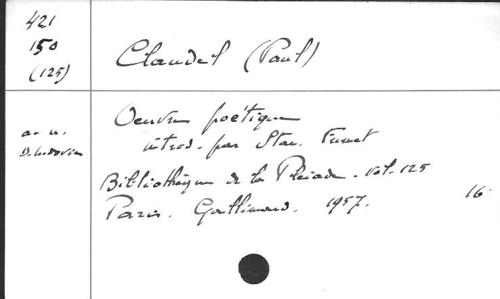 421
150
(125)
Claudel (Paul)
a. n.
Oeuvre poétique
introd. par Stan. Fumet
Bibliothèque de la Pleiade. vol. 125
Paris. Gallimard. 1957. 16